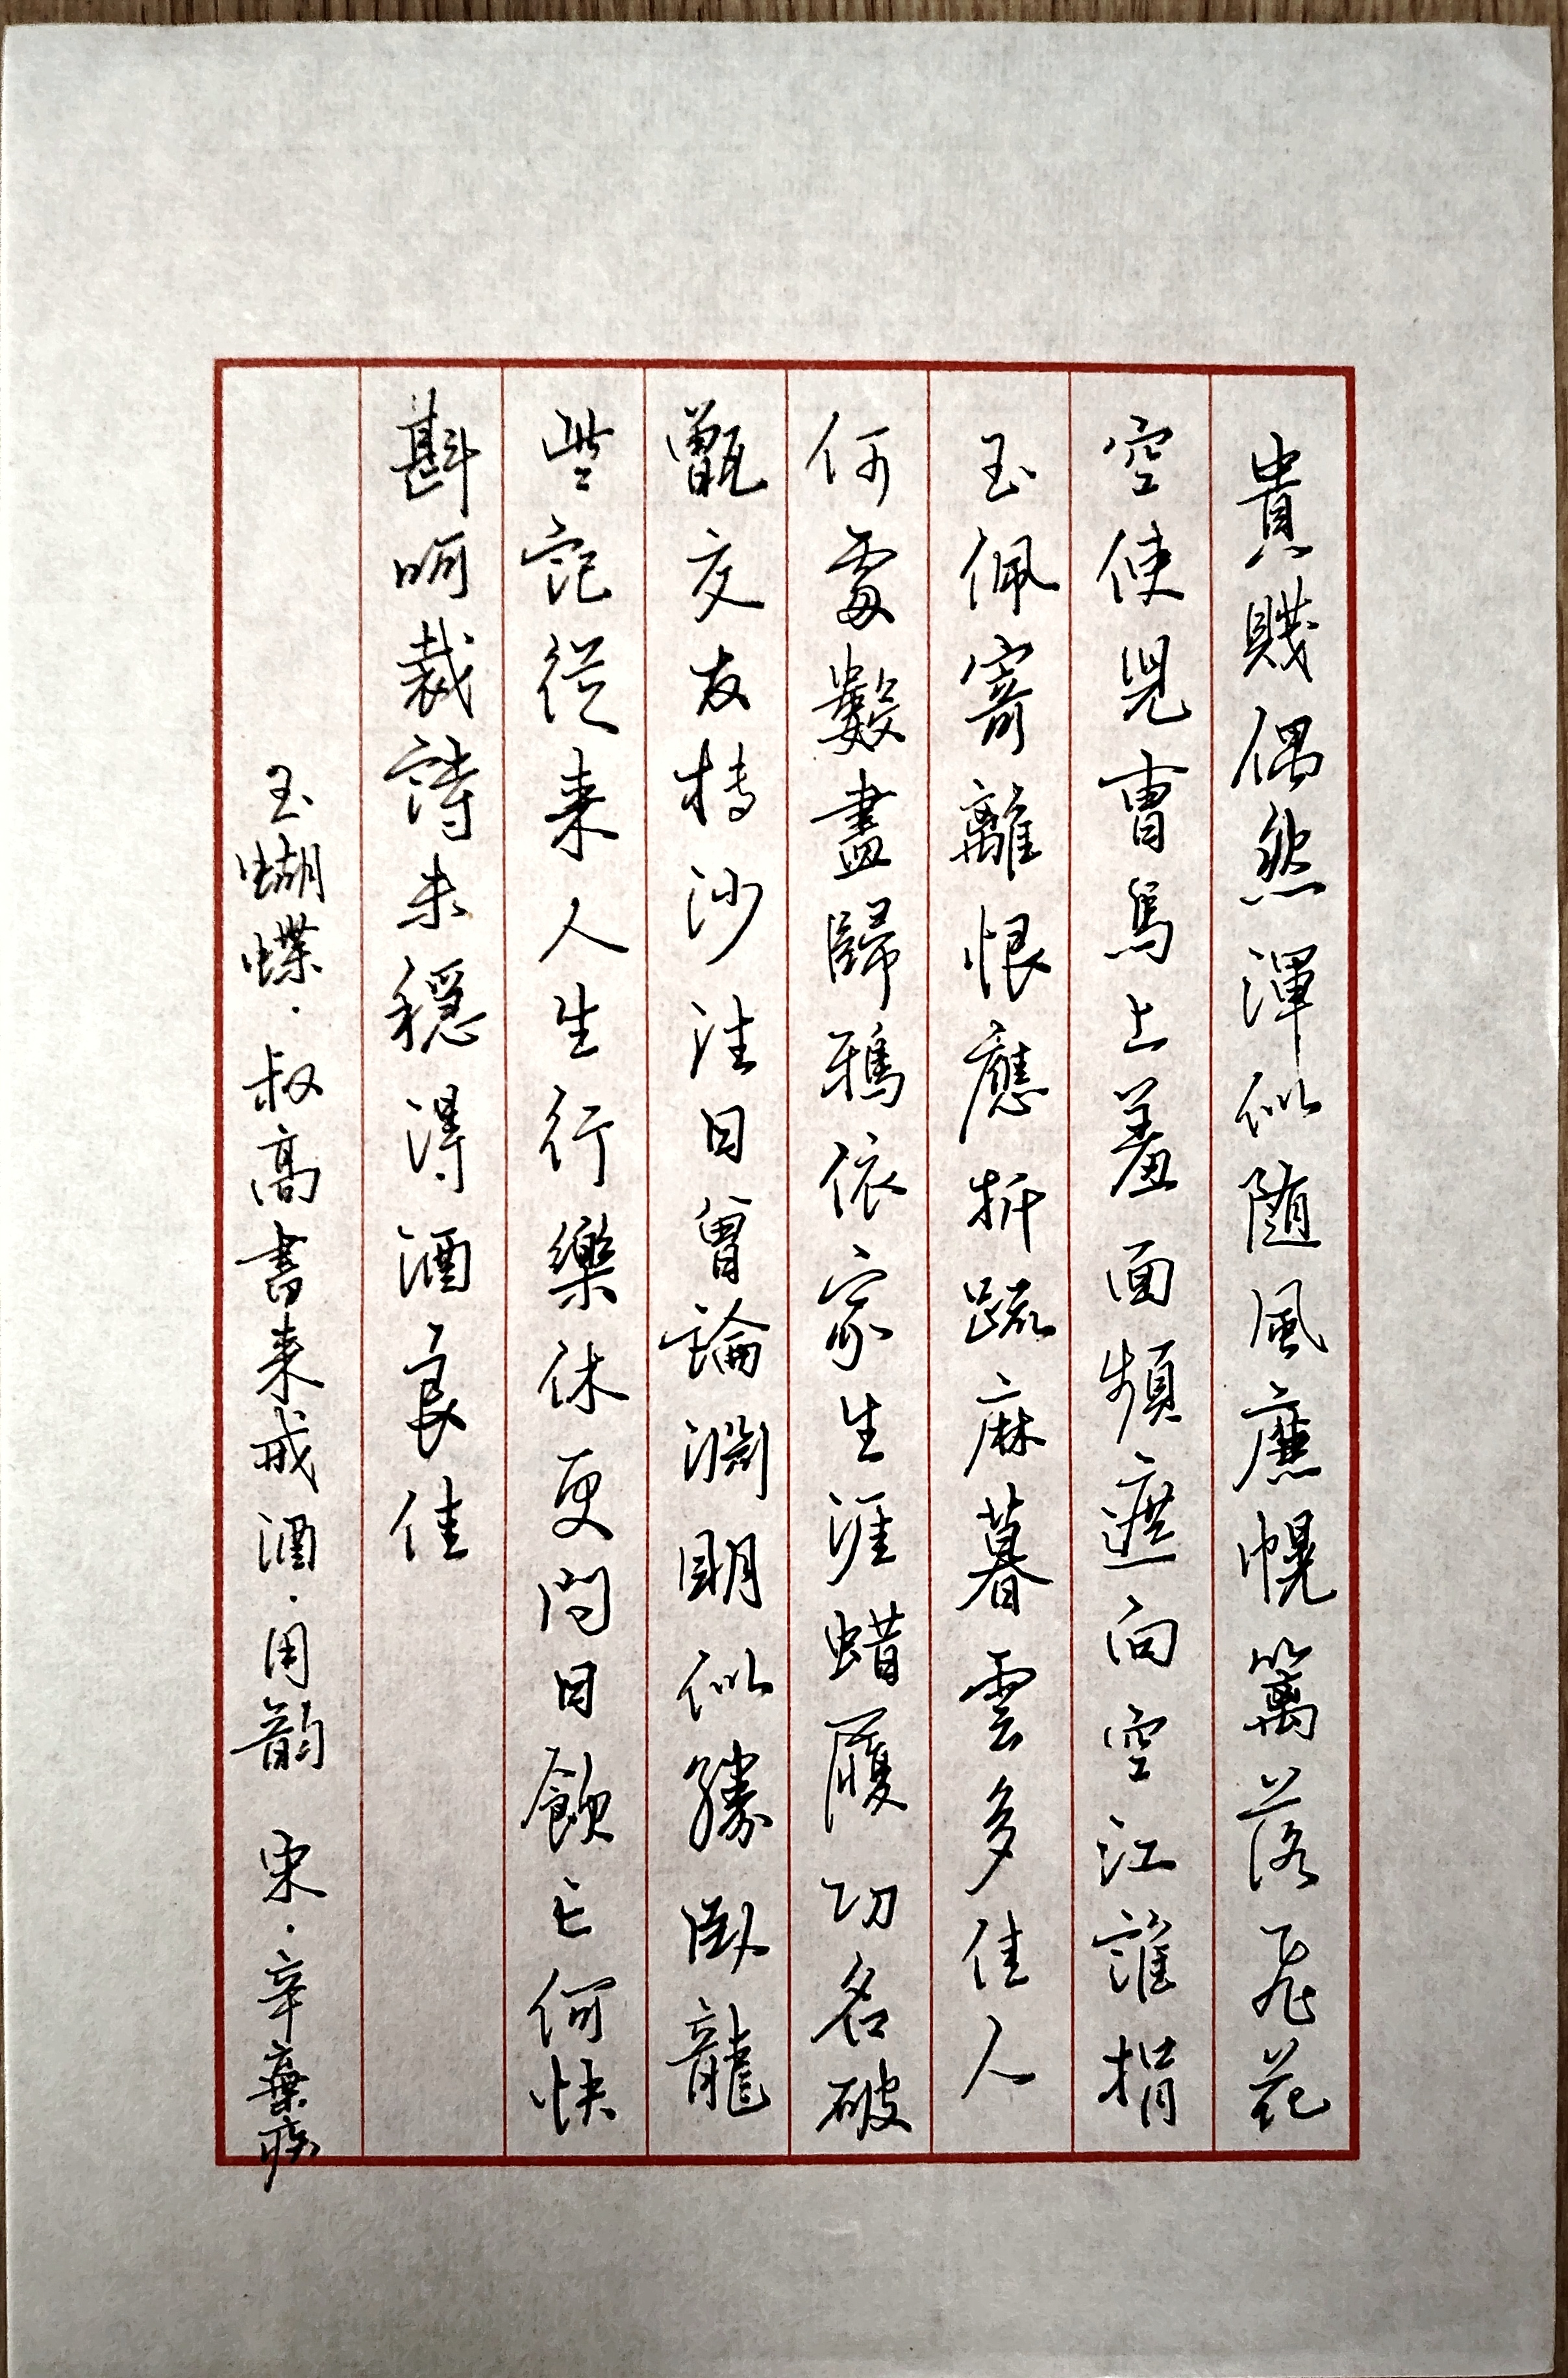 貴賤偶然渾似随風簾幌籬落飛花
空使兒曹馬上羞面頻遮向空江誰捐
玉佩寄離恨應折疏麻暮雲多佳人
何處數盡歸鴉依家生涯蜡屐功名破
甑交友摶沙往日曾論淵明似勝卧龍
些記從来人生行樂休更問日飲亡何快
斟呵裁詩未穩得酒良佳
玉蝴蝶·叔高書来戒酒·用韵 宋·辛棄疾